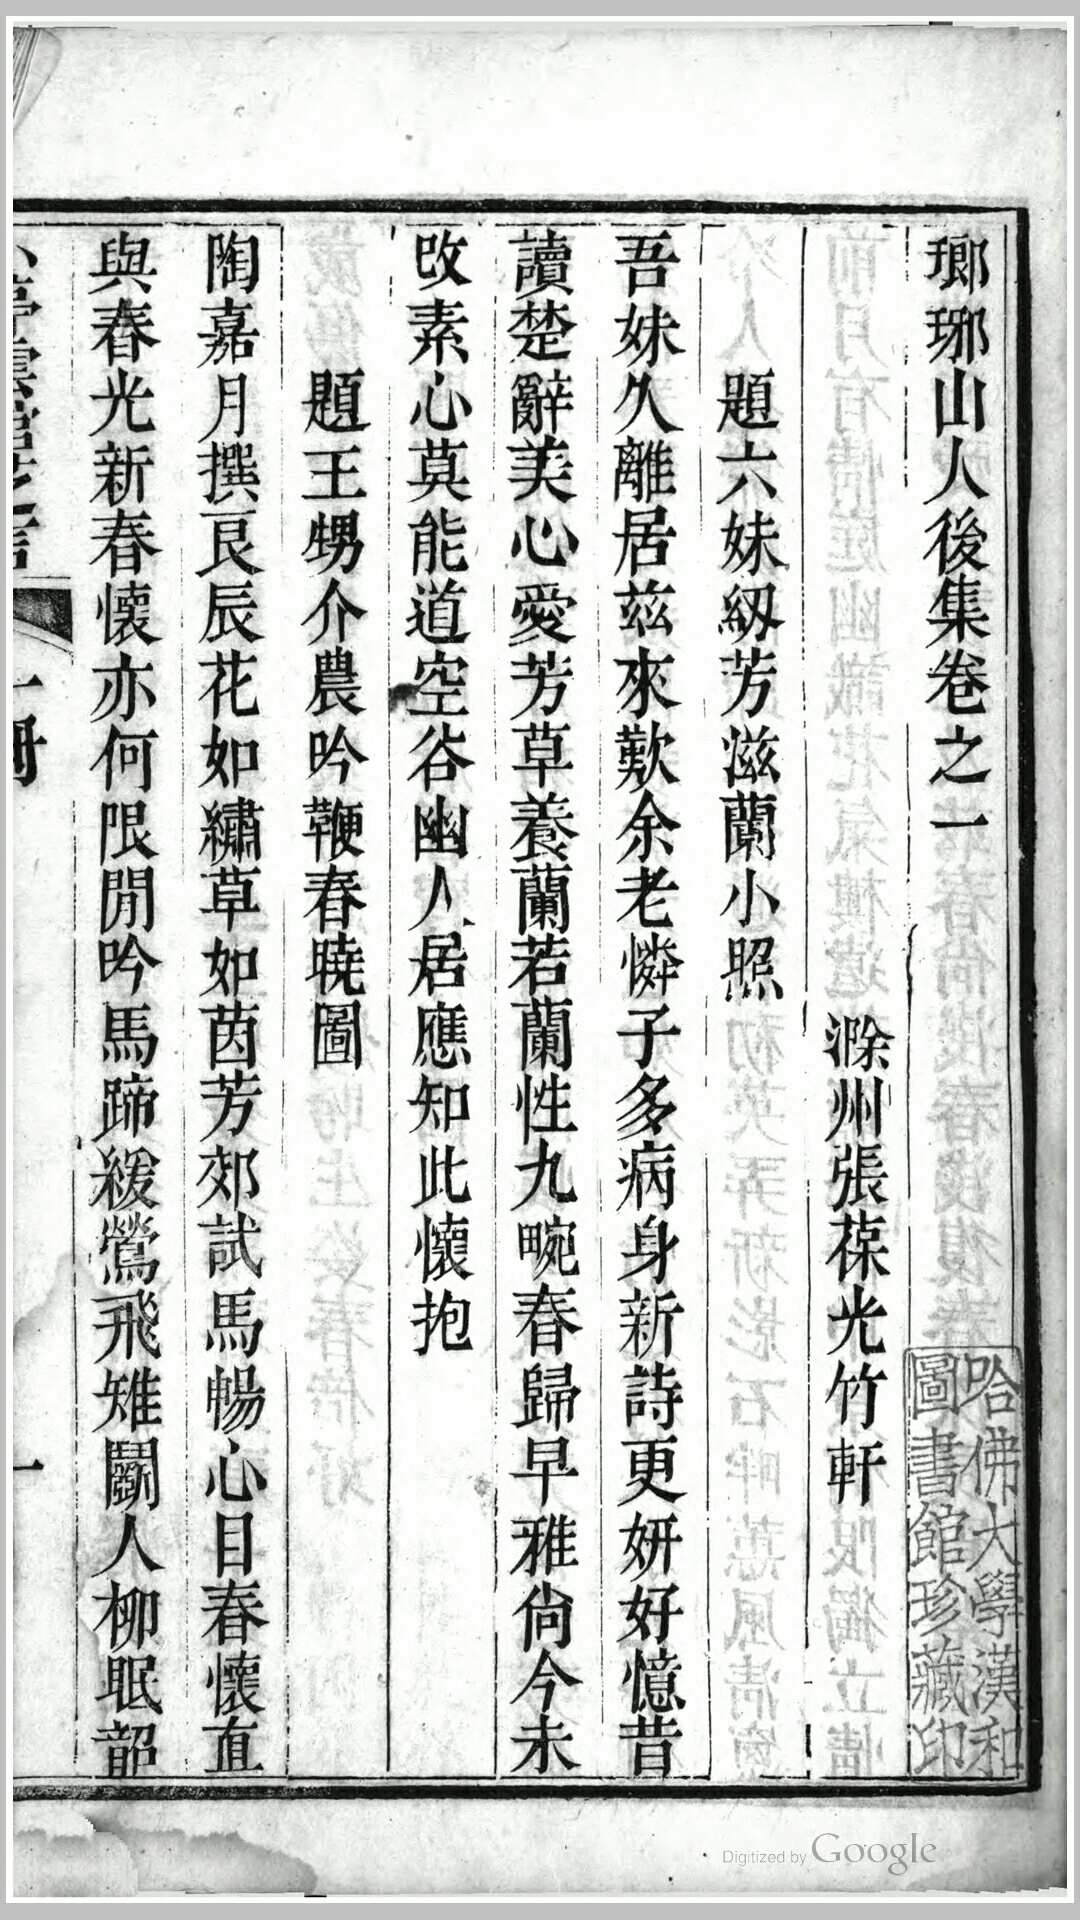 瑯琊山人後集卷之一
滁州張葆光竹軒
題六妹紉芳滋蘭小照
吾妹久離居茲來歎余老憐子多病身新詩更妍好憶昔
讀楚辭美心愛芳草養蘭若蘭性九畹春歸早雅尙今未
改素心莫能道空谷幽人居應知此懷抱
題王甥介農吟鞭春曉圖
陶嘉月撰良辰花如繡草如茵芳郊試馬暢心目春懷直
與春光新春懷亦何限閒吟馬蹄緩鶯飛雉鬭人柳眠韶
一冊
一
哈佛大學漢和
圖書館珍藏印
Digitized by Google